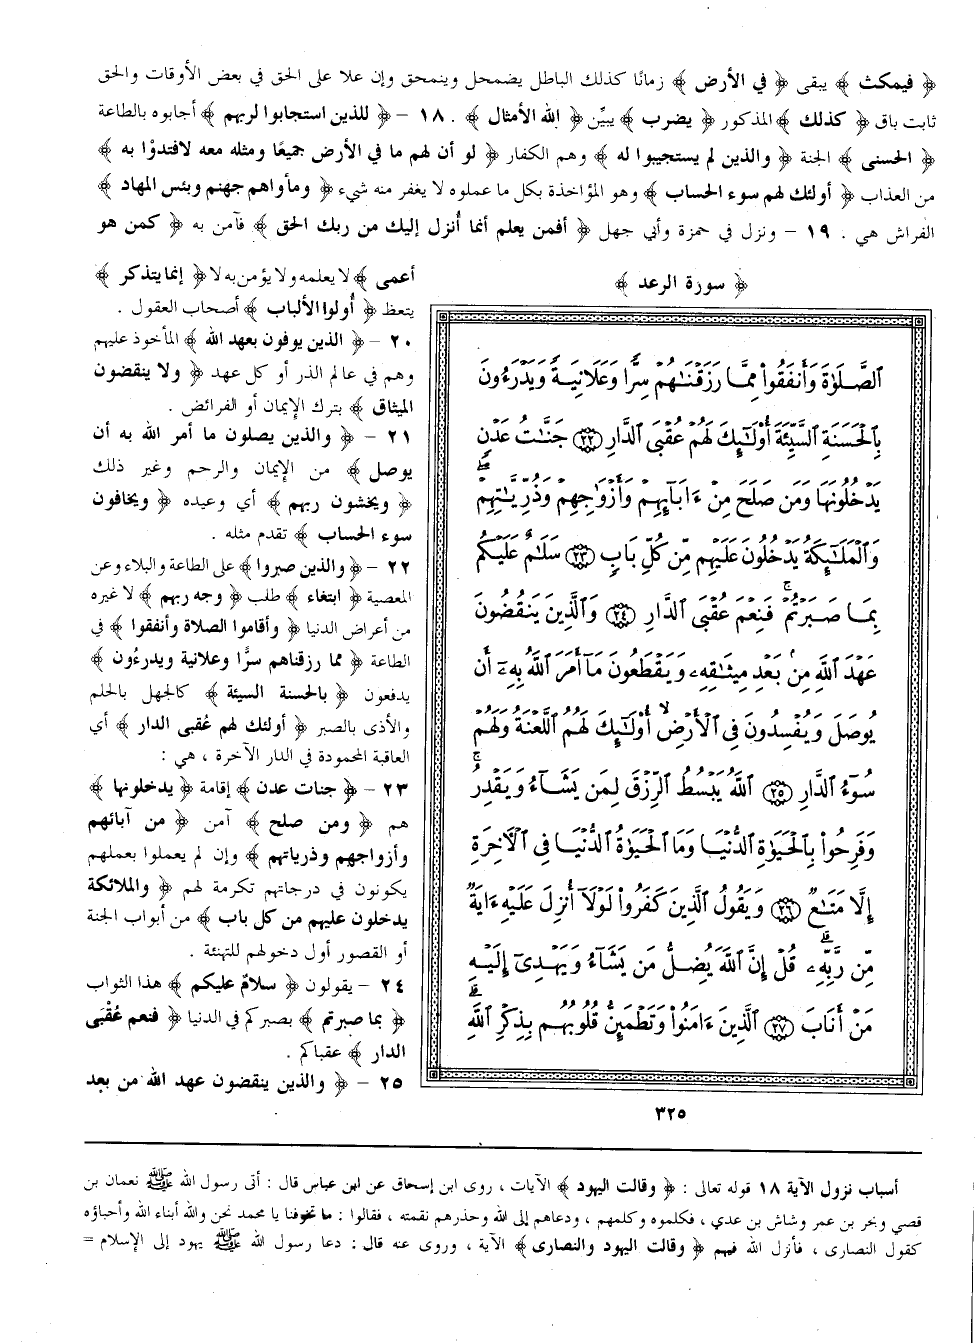 ﴿ فيمكث ﴾ يبقى ﴿ في الأرض ﴾ زمانًا كذلك الباطل يضمحل وينمحق وإن علا على الحق في بعض الأوقات والحق
ثابت باق ﴿ كذلك ﴾ المذكور ﴿ يضرب ﴾ يبيِّن ﴿ الله الأمثال ﴾ . ١٨ – ﴿ للذين استجابوا لربهم ﴾ أجابوه بالطاعة
﴿ الحسنى ﴾ الجنة ﴿ والذين لم يستجيبوا له ﴾ وهم الكفار ﴿ لو أن لهم ما في الأرض جميعًا ومثله معه لافتدوْا به ﴾
من العذاب ﴿ أولئك لهم سوء الحساب ﴾ وهو المؤاخذة بكل ما عملوه لا يغفر منه شيء ﴿ ومأواهم جهنم وبئس المهاد ﴾
الفراش هي . ١٩ – ونزل في حمزة وأبي جهل ﴿ أفمن يعلم أنما أُنزل إليك من ربك الحق ﴾ فآمن به ﴿ كمن هو
أعمى ﴾ لا يعلمه ولا يؤمن به لا ﴿ إنما يتذكر ﴾
يتعظ ﴿ أُولوا الألباب ﴾ أصحاب العقول .
٢٠ – ﴿ الذين يوفون بعهد الله ﴾ المأخوذ عليهم
وهم في عالم الذر أو كل عهد ﴿ ولا ينقضون
الميثاق ﴾ بترك الإيمان أو الفرائض .
٢١ – ﴿ والذين يصلون ما أمر الله به أن
يوصل ﴾ من الإيمان والرحم وغير ذلك
﴿ ويخشون ربهم ﴾ أي وعيده ﴿ ويخافون
سوء الحساب ﴾ تقدم مثله .
٢٢ – ﴿ والذين صبروا ﴾ على الطاعة والبلاء وعن
المعصية ﴿ ابتغاء ﴾ طلب ﴿ وجه ربهم ﴾ لا غيره
من أعراض الدنيا ﴿ وأقاموا الصلاة وأنفقوا ﴾ في
الطاعة ﴿ مما رزقناهم سرًّا وعلانية ويدرءُون ﴾
يدفعون ﴿ بالحسنة السيئة ﴾ كالجهل بالحلم
والأذى بالصبر ﴿ أولئك لهم عُقبى الدار ﴾ أي
العاقبة المحمودة في الدار الآخرة ، هي :
٢٣ – ﴿ جنات عدن ﴾ إقامة ﴿ يدخلونها ﴾
هم ﴿ ومن صلح ﴾ آمن ﴿ من آبائهم
وأزواجهم وذرياتهم ﴾ وإن لم يعملوا بعملهم
يكونون في درجاتهم تكرمة لهم ﴿ والملائكة
يدخلون عليهم من كل باب ﴾ من أبواب الجنة
أو القصور أول دخولهم للتهنئة .
٢٤ – يقولون ﴿ سلامٌ عليكم ﴾ هذا الثواب
﴿ بما صبرتم ﴾ بصبركم في الدنيا ﴿ فنعم عُقْبَى
الدار ﴾ عقباكم .
٢٥ – ﴿ والذين ينقضون عهد الله من بعد
﴿ سورة الرعد ﴾
ٱلصَّلَوٰةَ وَأَنفَقُوا۟ مِمَّا رَزَقْنَٰهُمْ سِرًّا وَعَلَانِيَةً وَيَدْرَءُونَ
بِٱلْحَسَنَةِ ٱلسَّيِّئَةَ أُو۟لَٰٓئِكَ لَهُمْ عُقْبَى ٱلدَّارِ ٢٢ جَنَّٰتُ عَدْنٍ
يَدْخُلُونَهَا وَمَن صَلَحَ مِنْ ءَابَآئِهِمْ وَأَزْوَٰجِهِمْ وَذُرِّيَّٰتِهِمْ ۖ
وَٱلْمَلَٰٓئِكَةُ يَدْخُلُونَ عَلَيْهِم مِّن كُلِّ بَابٍ ٢٣ سَلَٰمٌ عَلَيْكُم
بِمَا صَبَرْتُمْ ۚ فَنِعْمَ عُقْبَى ٱلدَّارِ ٢٤ وَٱلَّذِينَ يَنقُضُونَ
عَهْدَ ٱللَّهِ مِنۢ بَعْدِ مِيثَٰقِهِۦ وَيَقْطَعُونَ مَآ أَمَرَ ٱللَّهُ بِهِۦٓ أَن
يُوصَلَ وَيُفْسِدُونَ فِى ٱلْأَرْضِ ۙ أُو۟لَٰٓئِكَ لَهُمُ ٱللَّعْنَةُ وَلَهُمْ
سُوٓءُ ٱلدَّارِ ٢٥ ٱللَّهُ يَبْسُطُ ٱلرِّزْقَ لِمَن يَشَآءُ وَيَقْدِرُ ۚ
وَفَرِحُوا۟ بِٱلْحَيَوٰةِ ٱلدُّنْيَا وَمَا ٱلْحَيَوٰةُ ٱلدُّنْيَا فِى ٱلْءَاخِرَةِ
إِلَّا مَتَٰعٌ ٢٦ وَيَقُولُ ٱلَّذِينَ كَفَرُوا۟ لَوْلَآ أُنزِلَ عَلَيْهِ ءَايَةٌ
مِّن رَّبِّهِۦ ۗ قُلْ إِنَّ ٱللَّهَ يُضِلُّ مَن يَشَآءُ وَيَهْدِىٓ إِلَيْهِ
مَنْ أَنَابَ ٢٧ ٱلَّذِينَ ءَامَنُوا۟ وَتَطْمَئِنُّ قُلُوبُهُم بِذِكْرِ ٱللَّهِ ۗ
٣٢٥
أسباب نزول الآية ١٨ قوله تعالى : ﴿ وقالت اليهود ﴾ الآيات ، روى ابن إسحاق عن ابن عباس قال : أتى رسول الله ﷺ نعمان بن
قصي وبحر بن عمر وشاش بن عدي ، فكلموه وكلمهم ، ودعاهم إلى الله وحذرهم نقمته ، فقالوا : ما تخوفنا يا محمد نحن والله أبناء الله وأحباؤه
كقول النصارى ، فأنزل الله فيهم ﴿ وقالت اليهود والنصارى ﴾ الآية ، وروى عنه قال : دعا رسول الله ﷺ يهود إلى الإسلام =